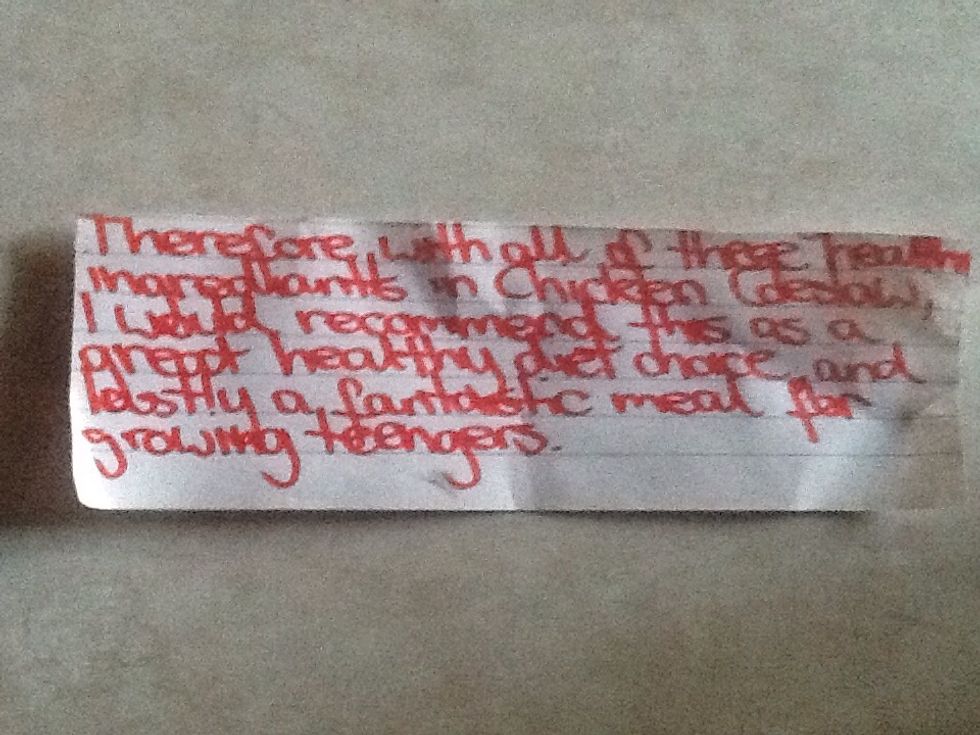 Therefore, with all of these healthy
ingrediantts in Chicken Coleslaw,
I would recommend this as a
great healthy diet choice and
lastly a fantastic meal for
growing teengers.